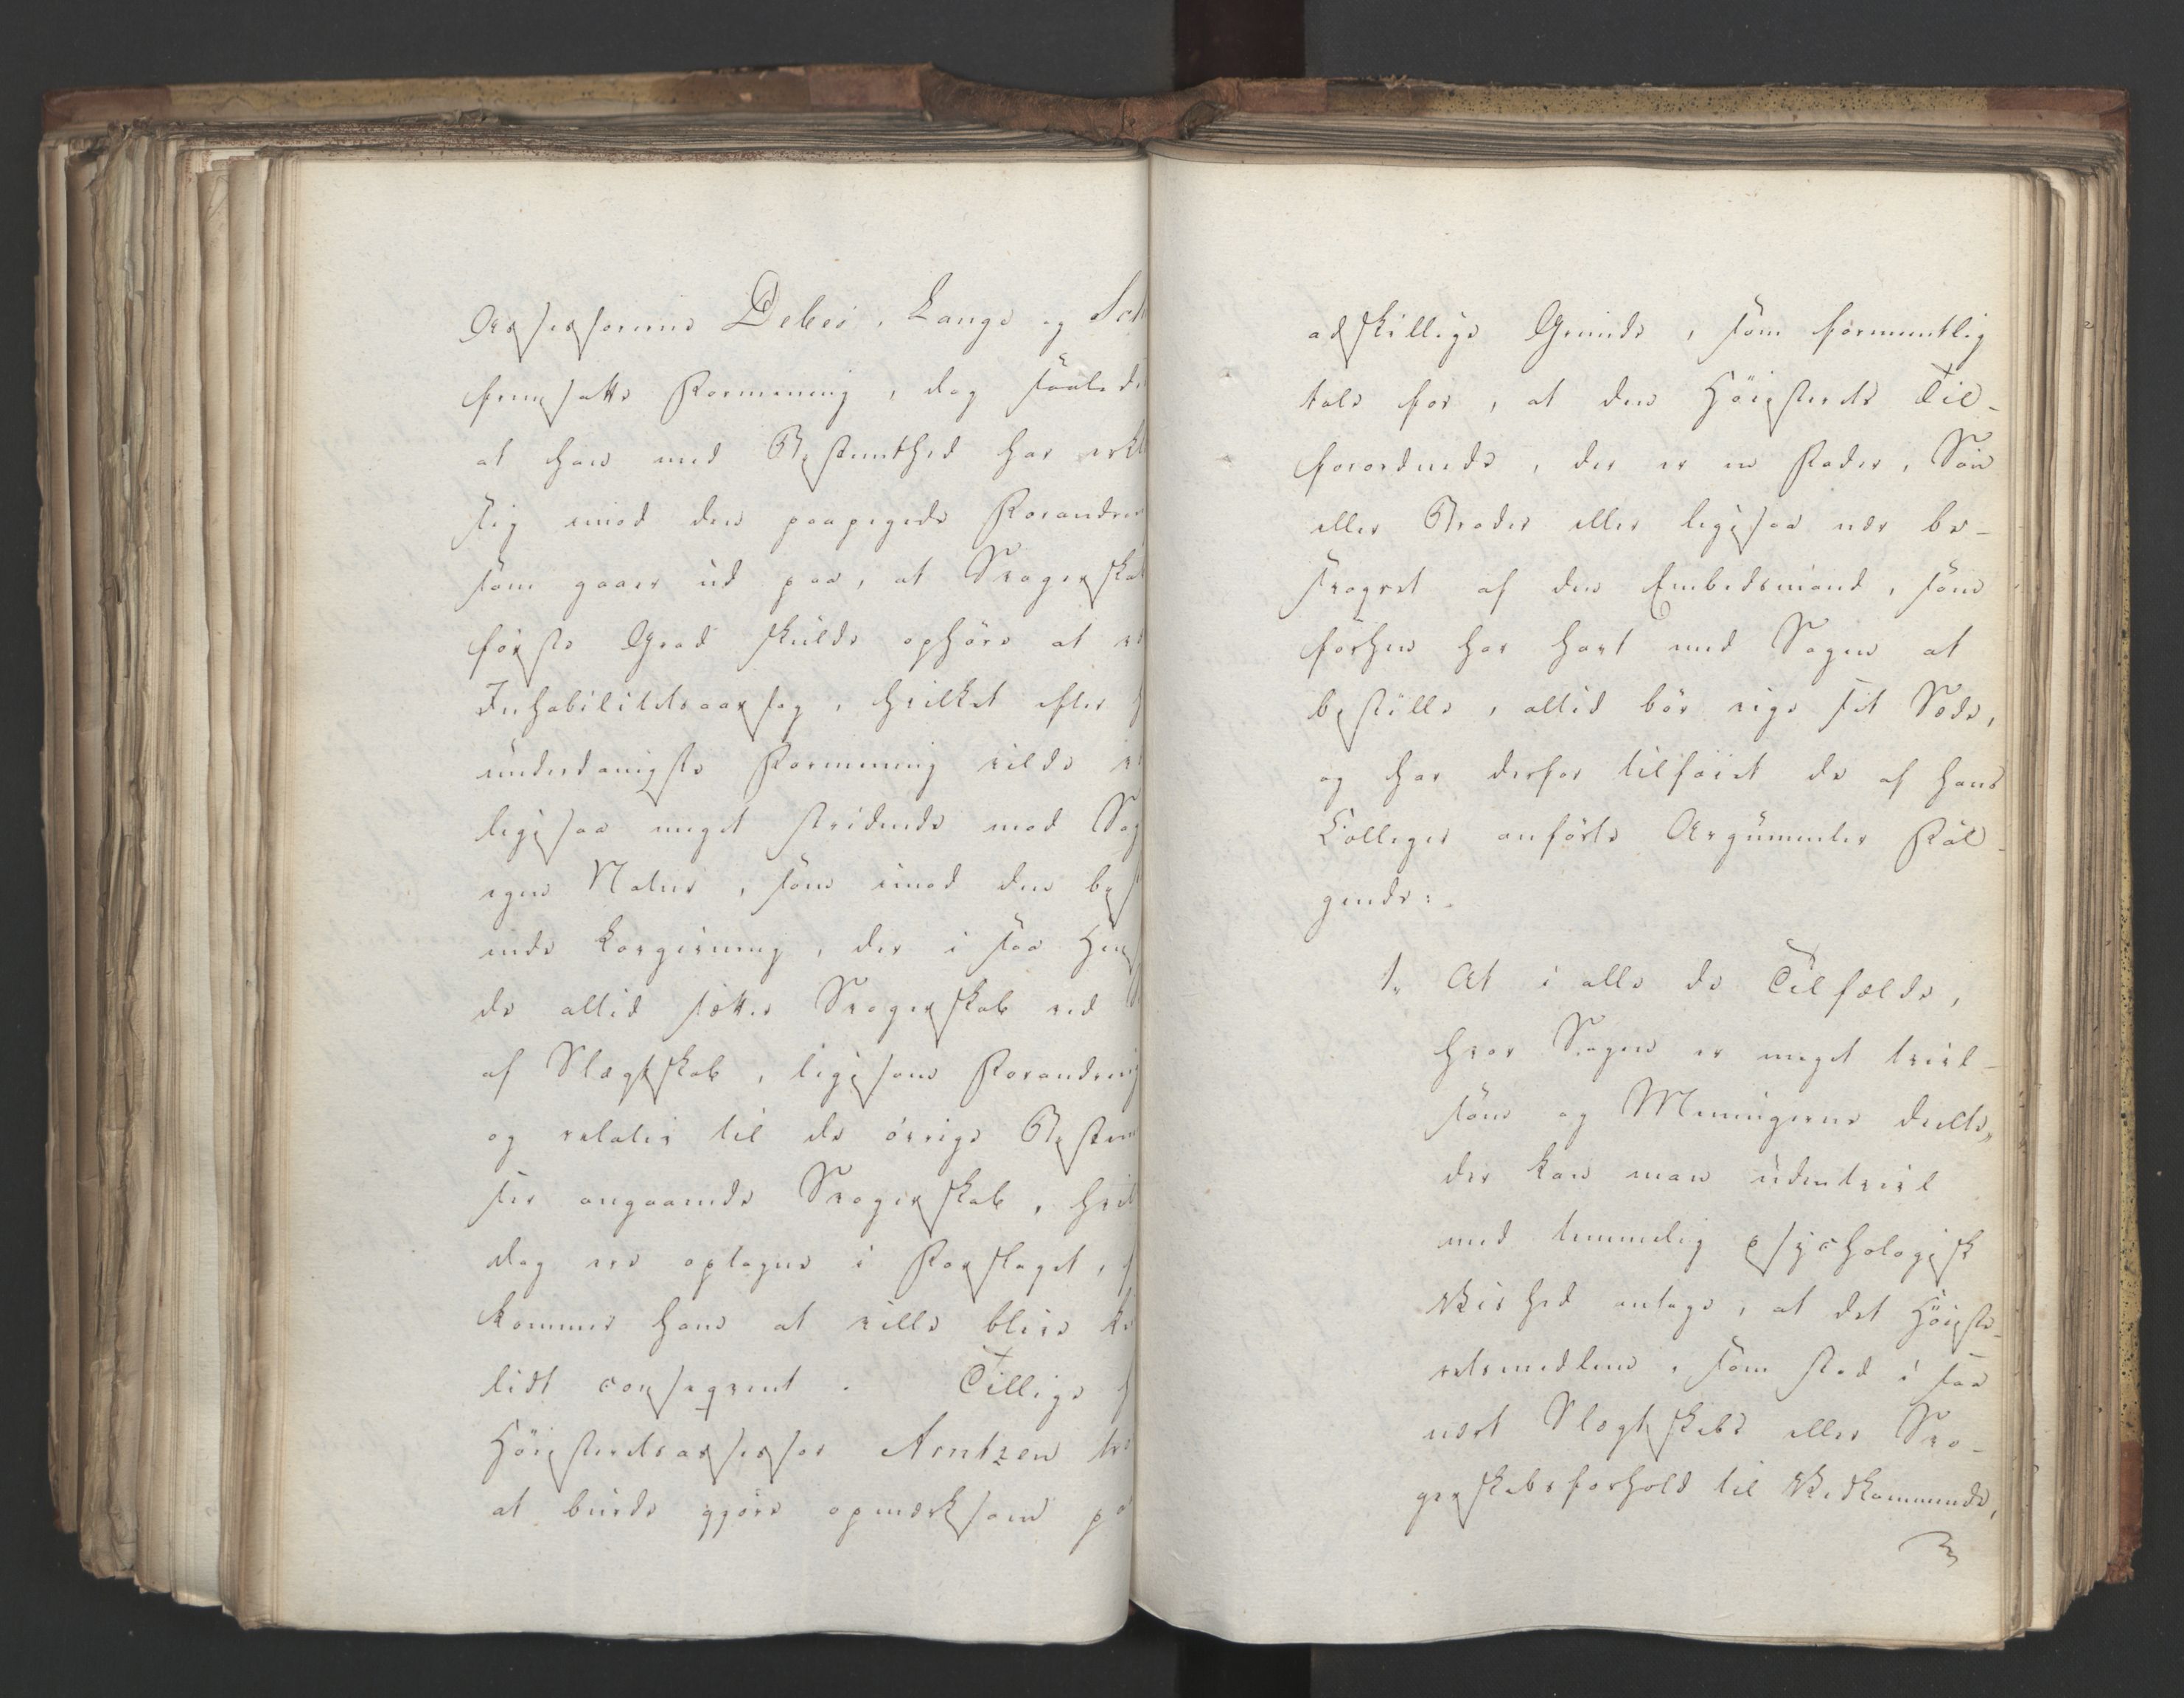 Assessorerne Debes, Lange og Sch
fremsatte Formening, dog saalede
at han med Bestemthed har erkl
sig imod den paapegede Forandrin
som gaaer ud paa, at Svogerskab
første Grad skulde ophøre at v
Inhabilitetsaarsag, hvilket efter h
underdanigste Formening vilde v
ligesaa meget stridende mod Sag
egen Natur, som imod den best
ende Lovgivning, der i saa Hens
de altid sætter Svogerskab ved
af Slægtskab, ligesom Forandring
og relativ til de øvrige Bestem
ser angaaende Svogerskab, hvil
dog ere optagne i Forslaget, f
kommer ham at ville blive
lidt conseqvent. Tillige h
Høiesteretsassessor Arntzen tro
at burde gjøre opmærksom pa
adskillige Grunde, som formentlig
tale for, at den Høiesterets Til-
forordnede, der er en Fader, Søn
eller Broder eller ligesaa nær be-
svogret af den Embedsmand, som
forhen har havt med Sagen at
bestille, altid bør vige sit Sæde,
og har derfor tilføiet de af hans
Colleger anførte Argumenter Føl-
gende:
1, At i alle de Tilfælde,
hvor Sagen er meget tvivl-
som og Meningerne deelte,
der kan man udentvivl
med temmelig psychologisk
Vished antage, at det Høieste-
retsmedlem, som stod i saa
nært Slægtskabs eller Svo-
gerskabsforhold til Vedkommende,